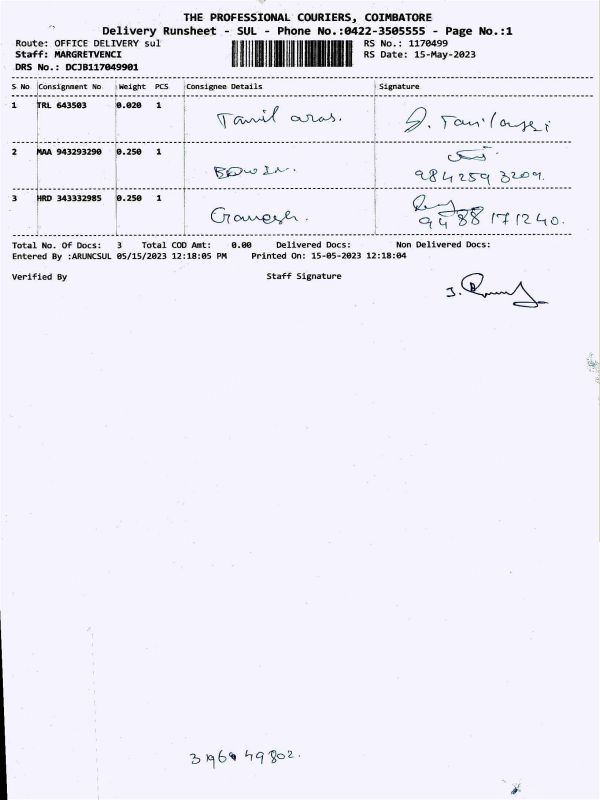 THE PROFESSIONAL COURIERS, COIMBATORE
Delivery Runsheet - SUL - Phone No.:0422-3505555 - Page No.:1
Route: OFFICE DELIVERY sul RS No.: 1170499
Staff: MARGRETVENCI RS Date: 15-May-2023
DRS No.: DCJB117049901
S No Consignment No Weight PCS Consignee Details Signature
1 TRL 643503 0.020 1 Tamil aras.
2 MAA 943293290 0.250 1 EDWIN.
9842593209.
3 HRD 343332985 0.250 1 Ganesh.
9488171240.
Total No. Of Docs: 3 Total COD Amt: 0.00 Delivered Docs: Non Delivered Docs:
Entered By :ARUNCSUL 05/15/2023 12:18:05 PM Printed On: 15-05-2023 12:18:04
Verified By Staff Signature